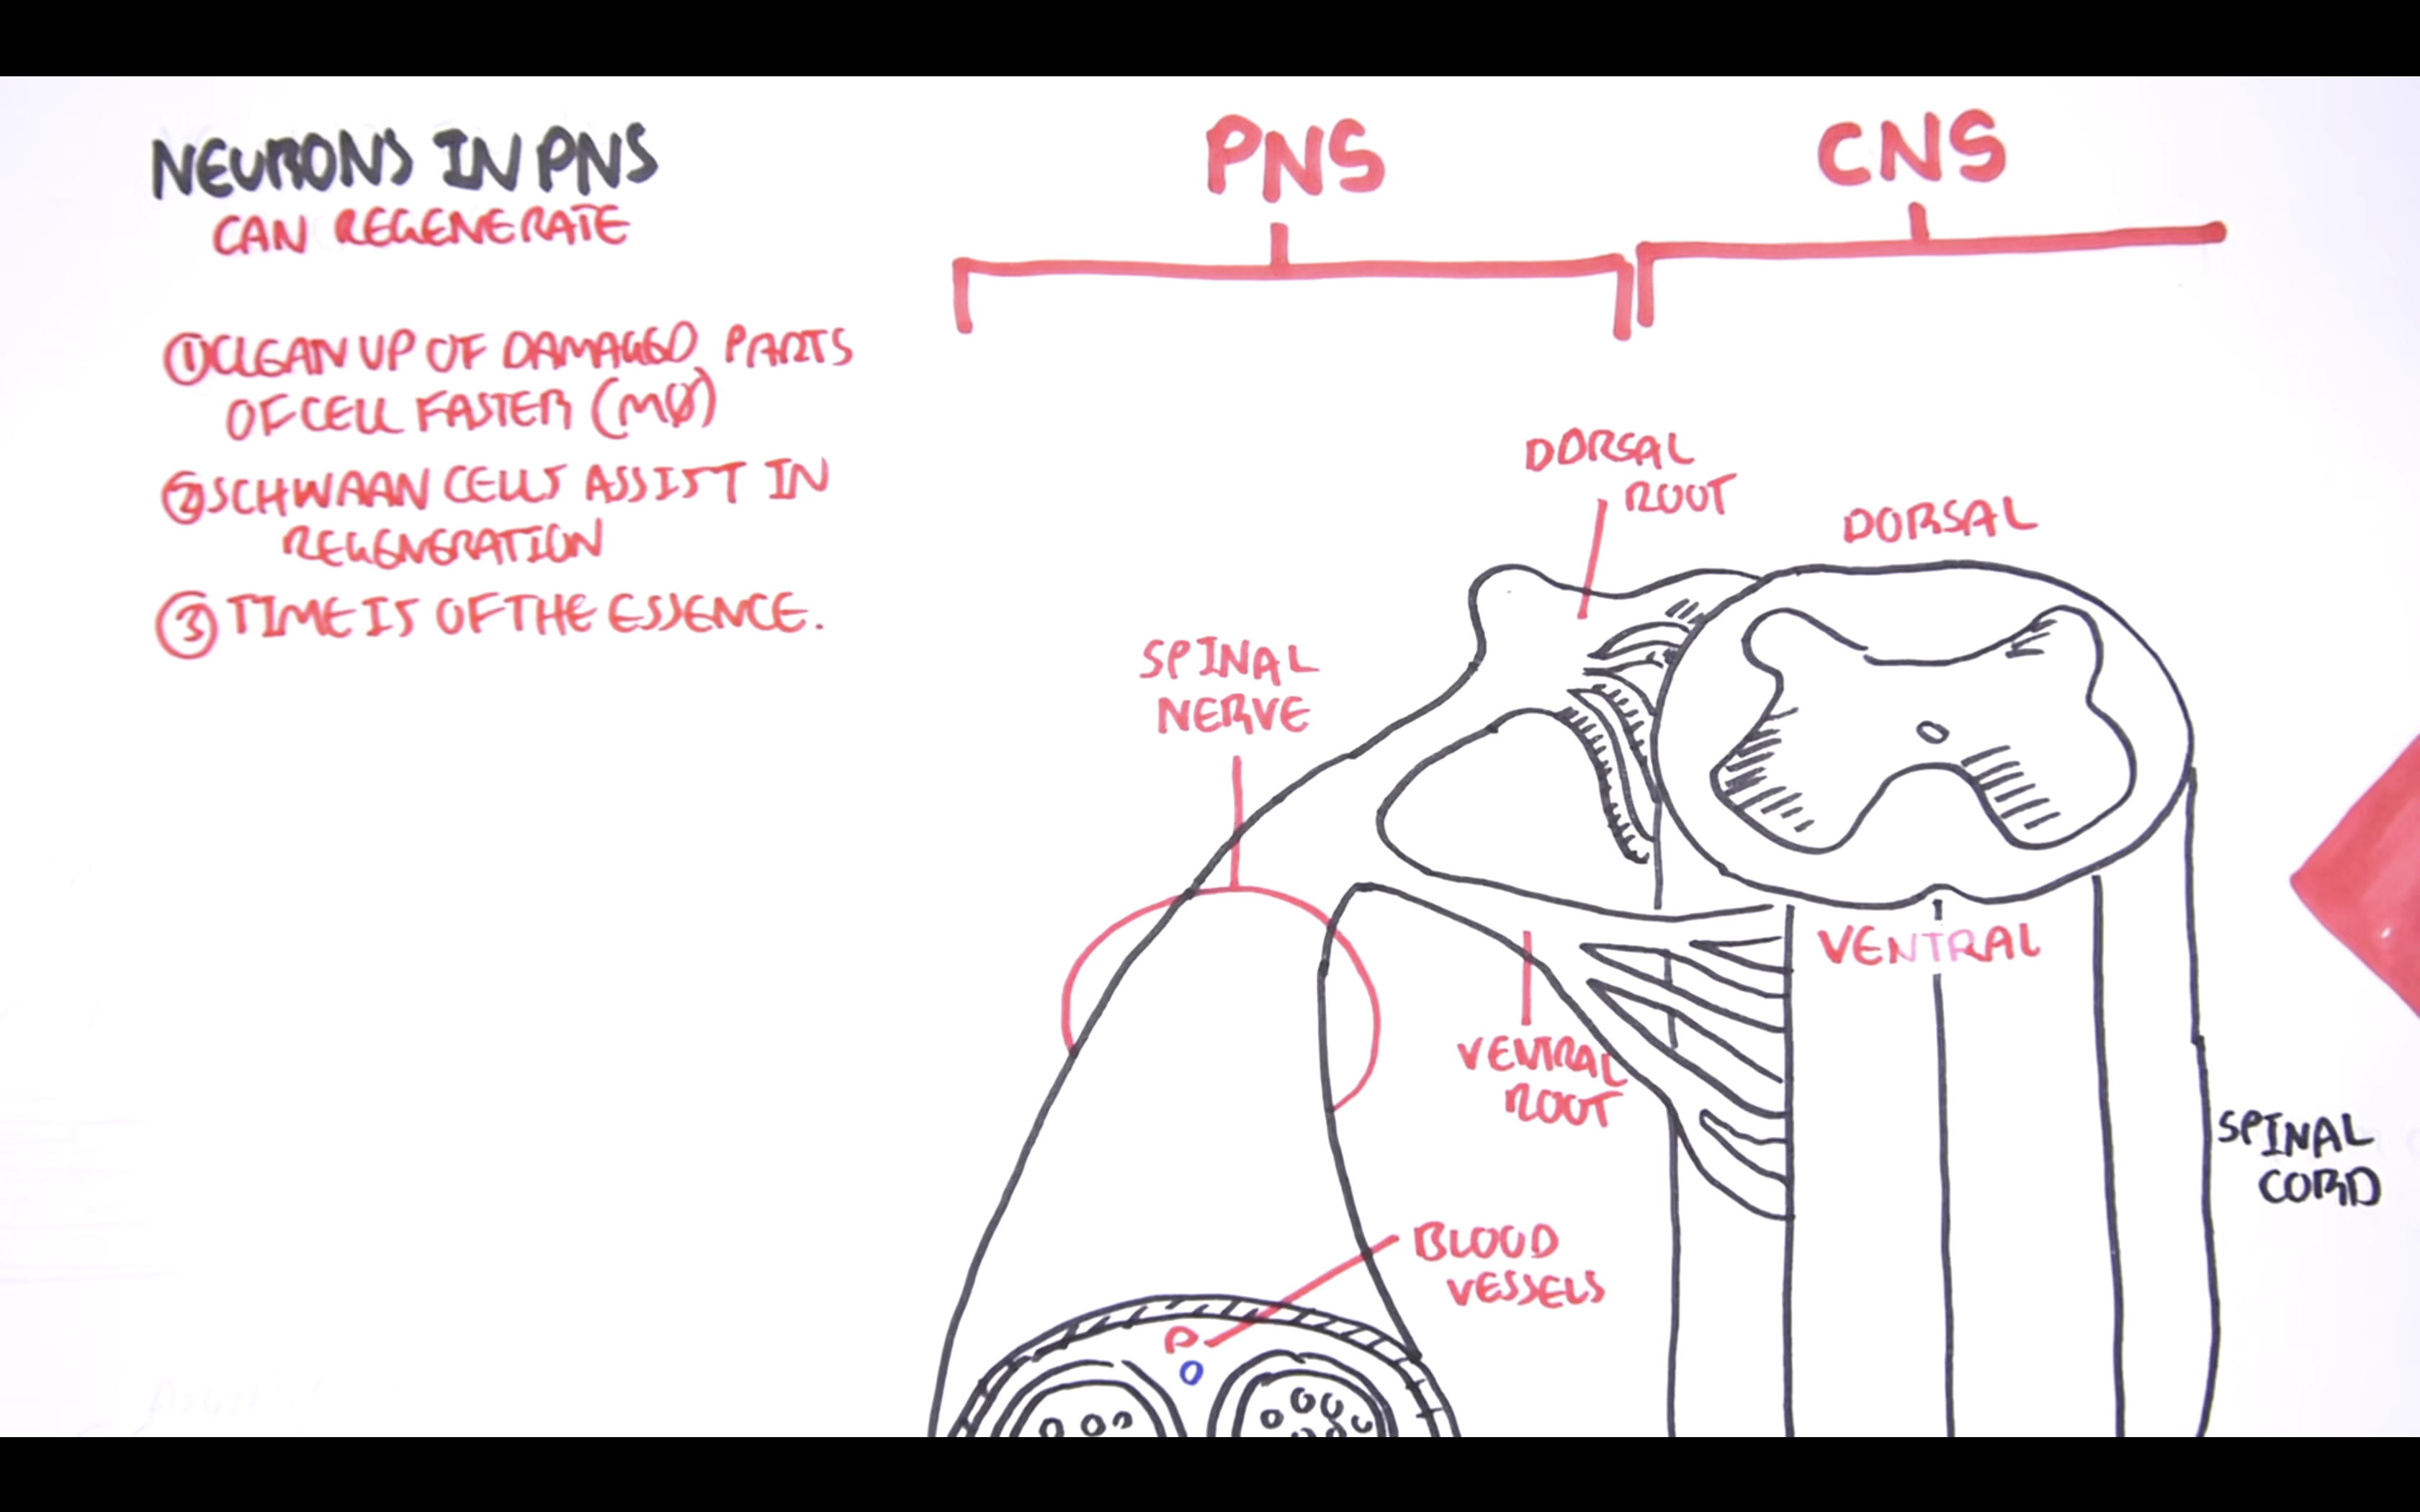 NEURONS IN PNS
CAN REGENERATE
① CLEAN UP OF DAMAGED PARTS
OF CELL FASTER (MØ)
② SCHWAAN CELLS ASSIST IN
REGENERATION
③ TIME IS OF THE ESSENCE.
PNS
CNS
DORSAL
ROOT
DORSAL
SPINAL
NERVE
VENTRAL
VENTRAL
ROOT
SPINAL
CORD
BLOOD
VESSELS